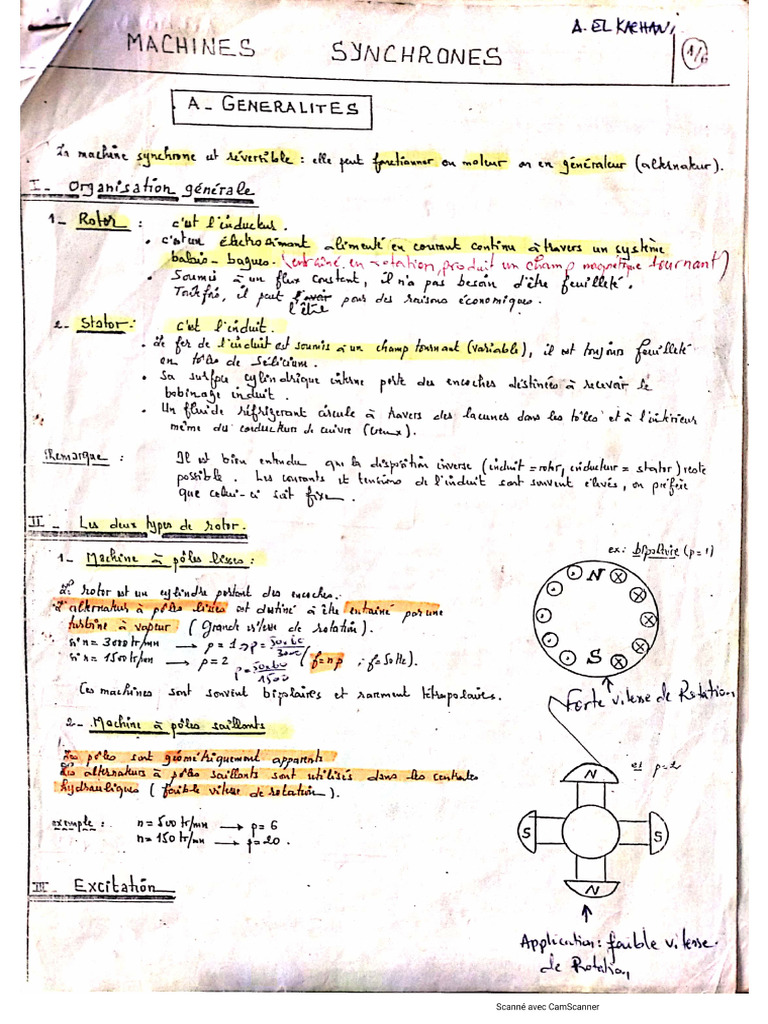 A. EL KACHANI
MACHINES SYNCHRONES
1/6
A_ GENERALITES
La machine synchrone est réversible : elle peut fonctionner en moteur ou en générateur (alternateur).
I_ Organisation générale
1_ Rotor : c'est l'inducteur.
• c'est un électroaimant alimenté en courant continu à travers un système
balais-bagues. (entraîné, en rotation, produit un champ magnétique tournant)
• Soumis à un flux constant, il n'a pas besoin d'être feuilleté.
Toutefois, il peut l'avoir pour des raisons économiques.
l'être
2_ Stator : c'est l'induit.
• Le fer de l'induit est soumis à un champ tournant (variable), il est toujours feuilleté
en tôles de Silicium.
• Sa surface cylindrique interne porte des encoches destinées à recevoir le
bobinage induit.
• Un fluide réfrigerant circule à travers des lacunes dans les tôles et à l'intérieur
même du conducteur de cuivre (creux).
Remarque : Il est bien entendu que la disposition inverse (induit = rotor, inducteur = stator) reste
possible. Les courants et tensions de l'induit sont souvent élevés, on préfère
que celui-ci soit fixe.
II_ Les deux types de rotor.
1_ Machine à pôles lisses :
ex: bipolaire (p=1)
Le rotor est un cylindre portant des encoches.
L'alternateur à pôles lisses est destiné à être entrainé par une
turbine à vapeur (Grande vitesse de rotation).
si n = 3000 tr/mn → p = 1 → p = 50.60/3000
si n = 1500 tr/mn → p = 2 p = 50x60/1500 (f = n p ; f = 50 Hz).
Ces machines sont souvent bipolaires et rarement tétrapolaires.
N
S
Forte vitesse de Rotation
2_ Machine à pôles saillants
Les pôles sont géométriquement apparents
Les alternateurs à pôles saillants sont utilisés dans les centrales
hydrauliques (faible vitesse de rotation).
exemple : n = 500 tr/mn → p = 6
n = 150 tr/mn → p = 20.
ex p=2
N
S
S
N
Application: faible vitesse
de Rotation
III_ Excitation
Scanné avec CamScanner